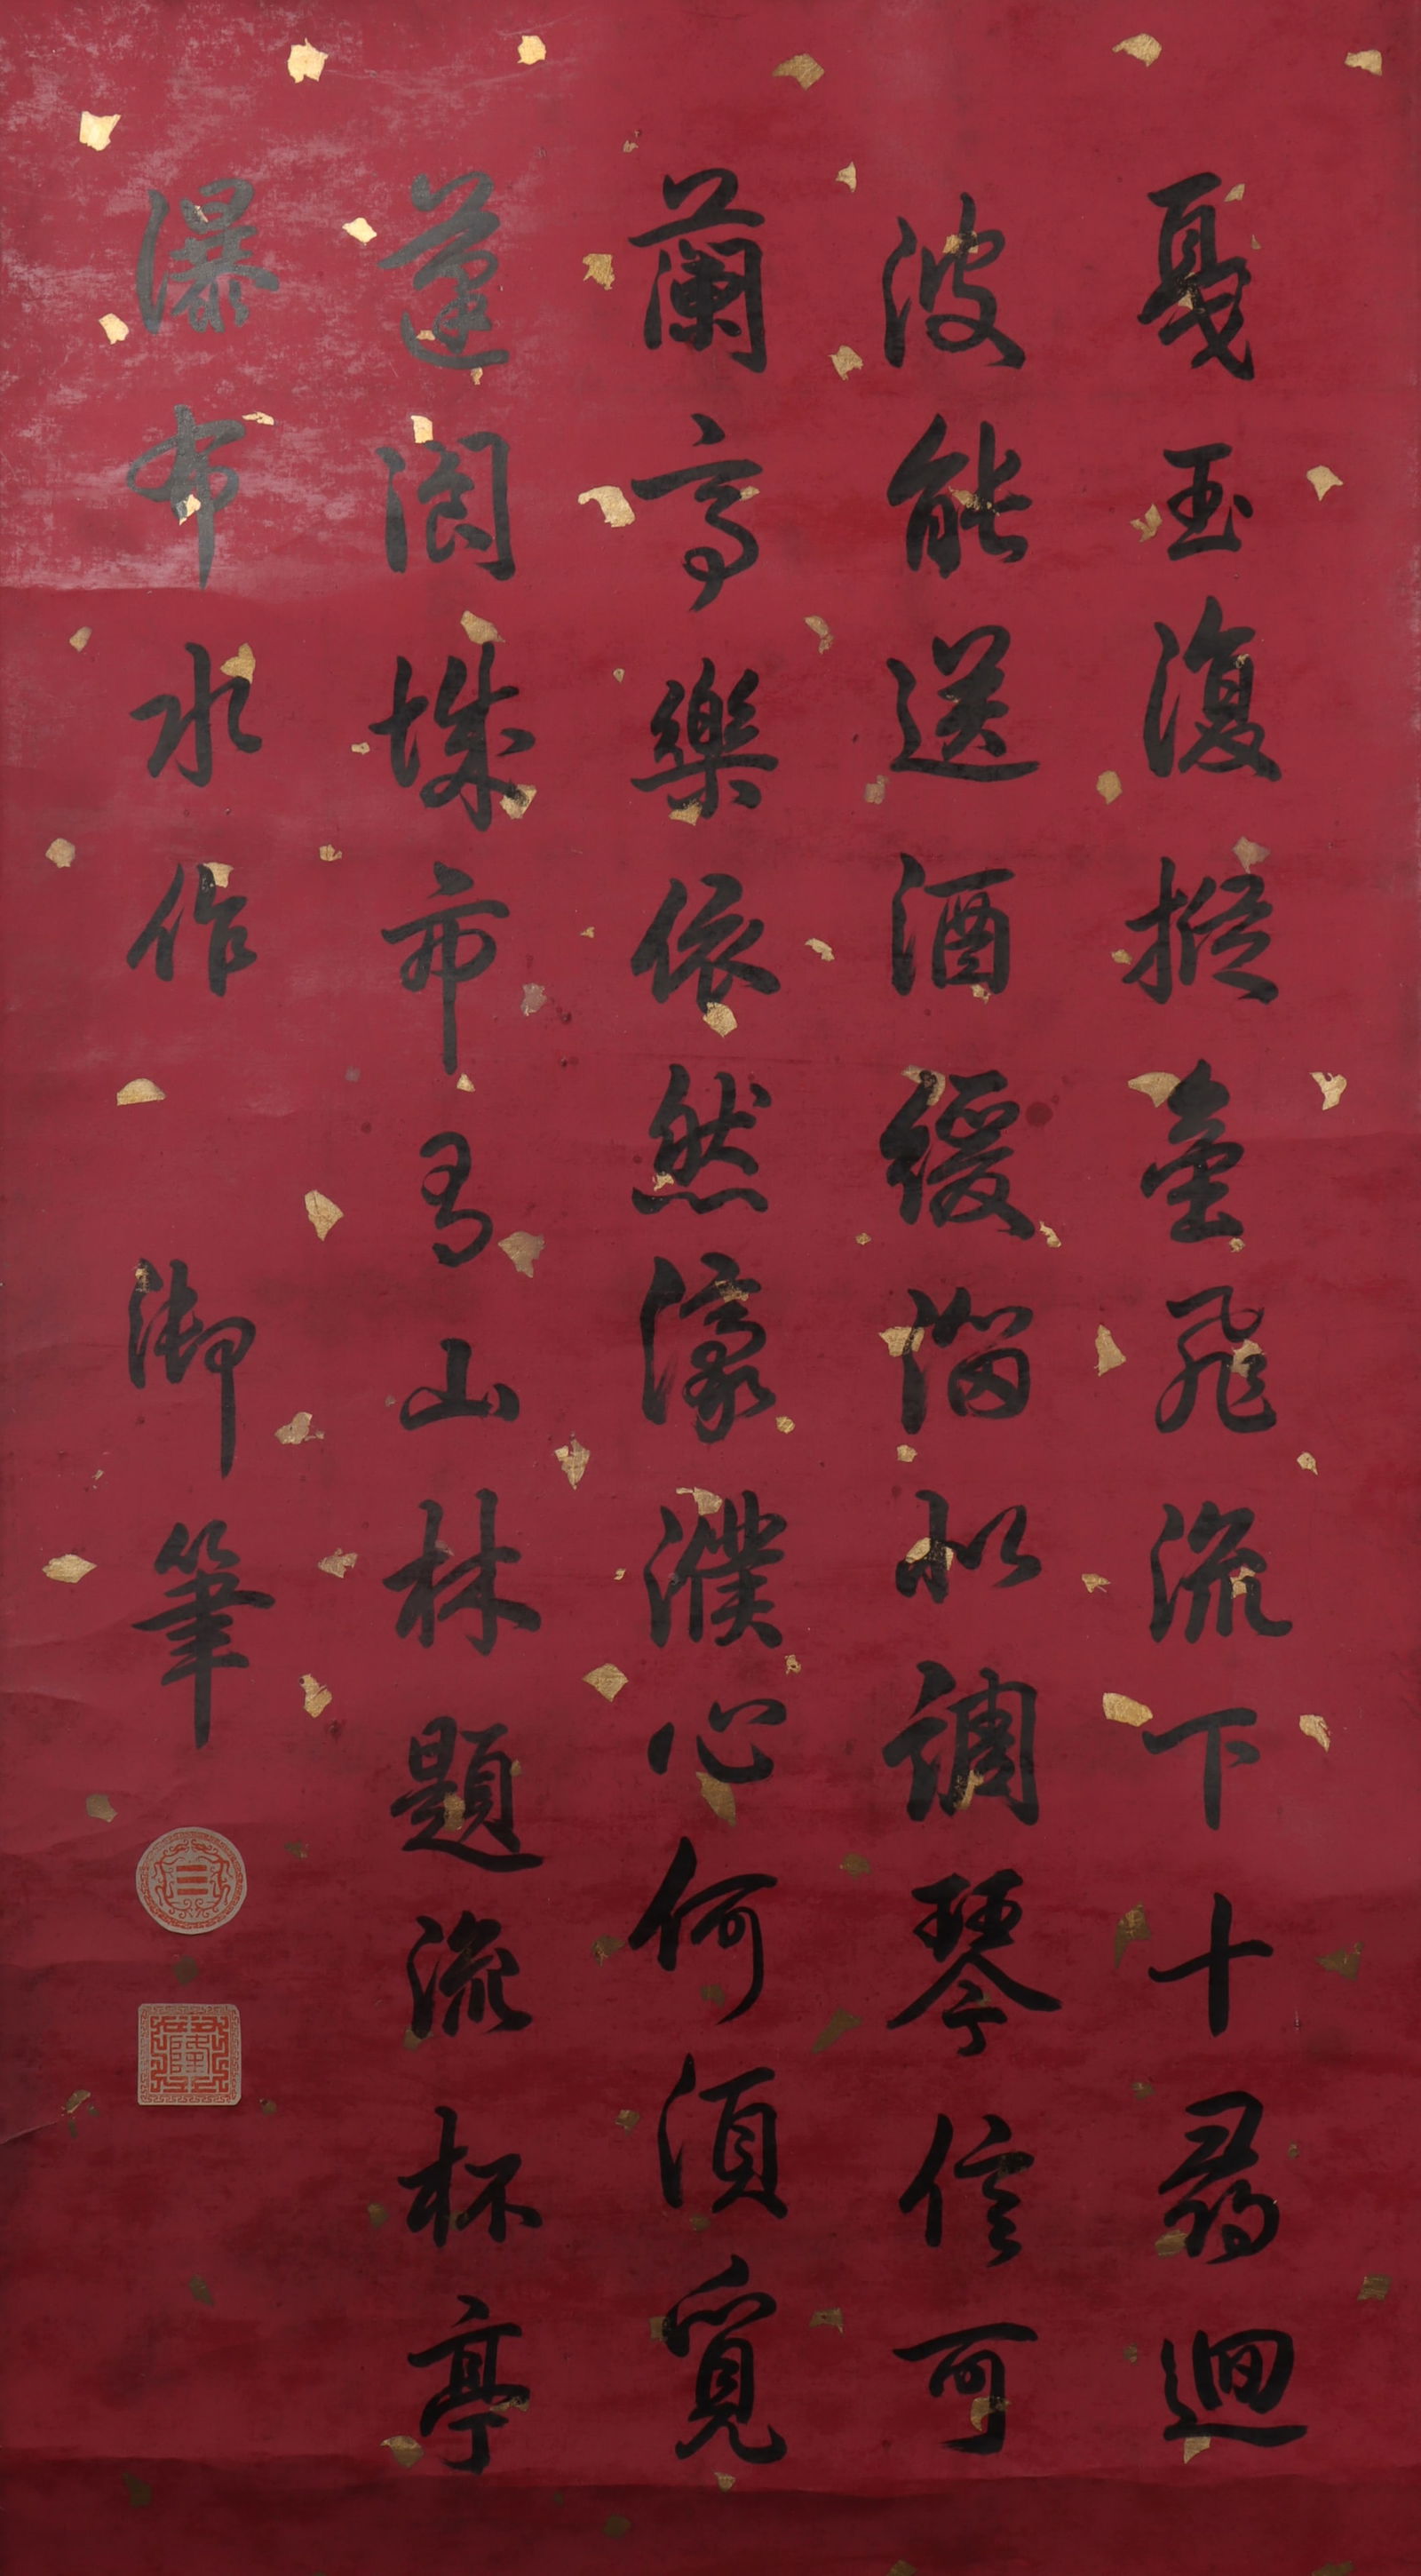 戛玉復摐金飛流下十尋迴
波能送酒緩溜似調琴信可
蘭亭樂依然濠濮心何須覓
蓬閬城市有山林題流杯亭
瀑布水作
御筆